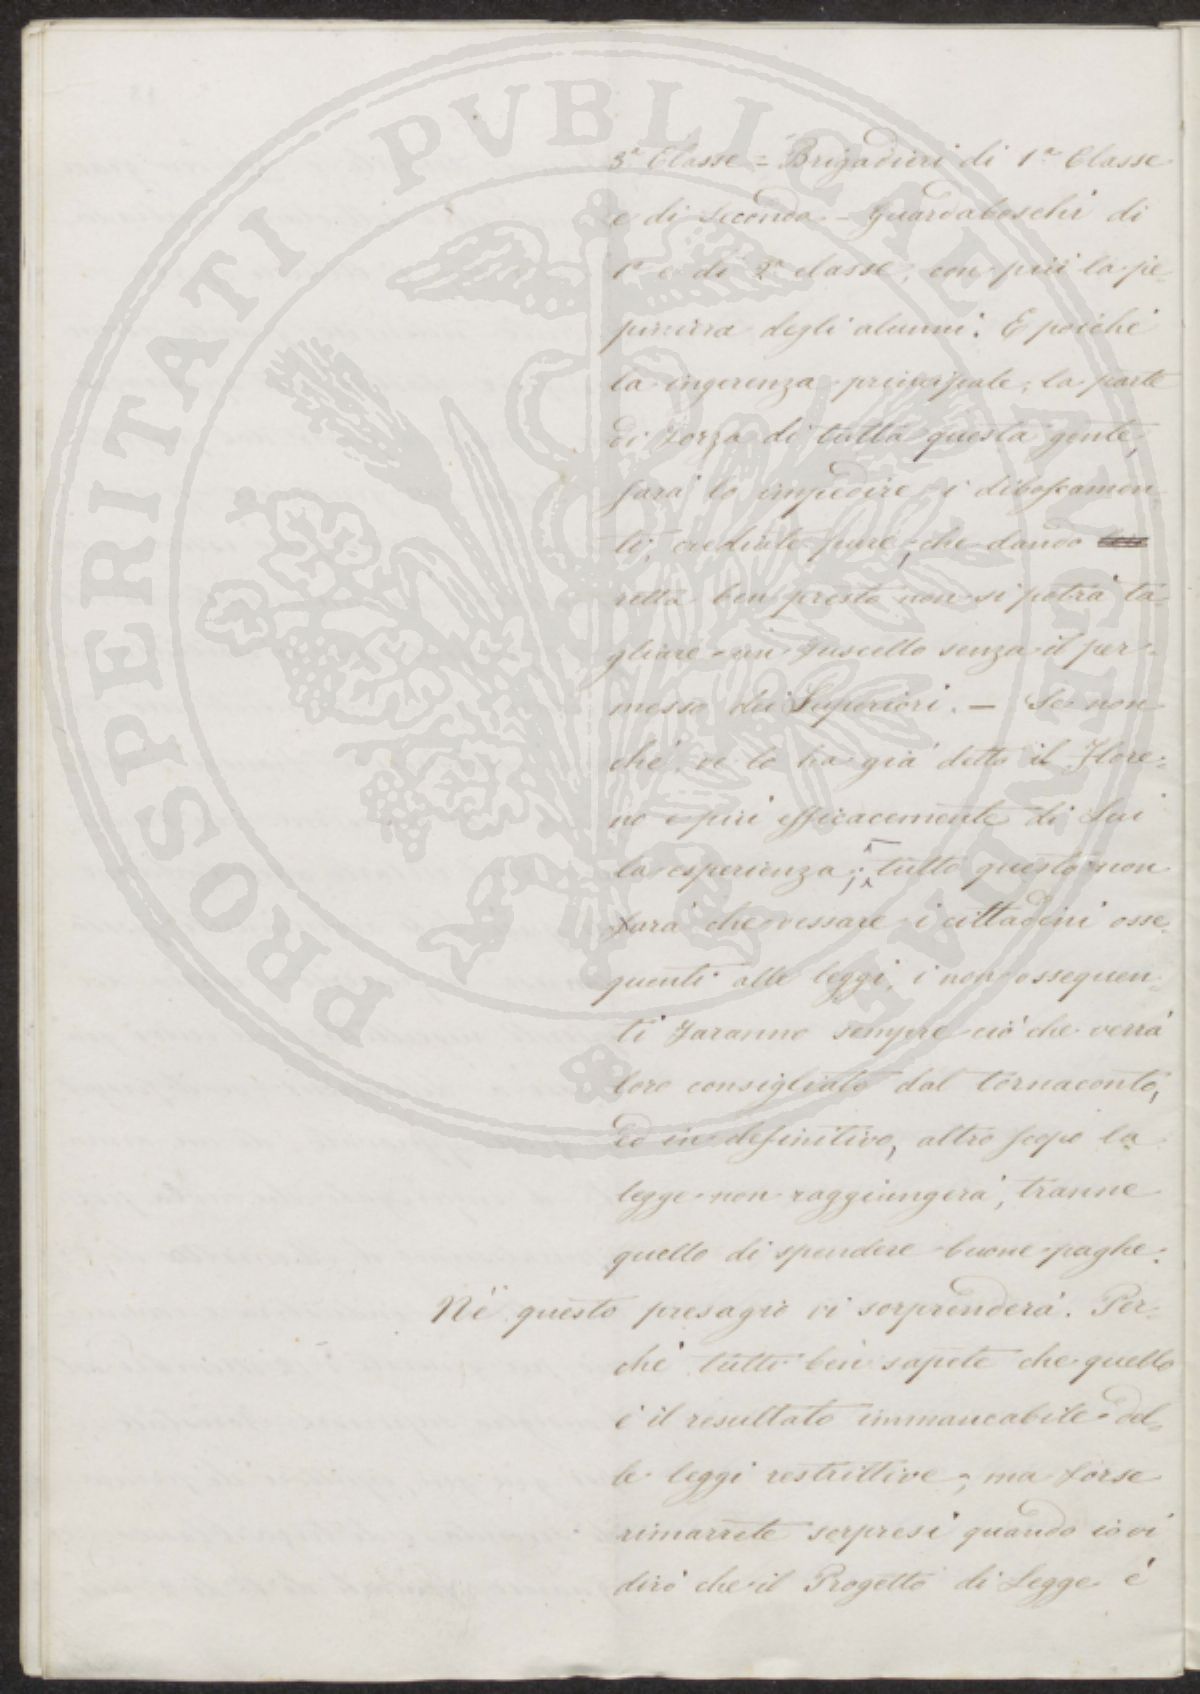 3ª Classe = Brigadieri di 1ª Classe
e di Seconda - Guardaboschi di
1ª e di 2ª classe, con più la pe
piniera degli alunni. E poichè
la ingerenza principale, la parte
di forza di tutta questa gente,
sarà lo impedire i diboscamen
ti, crediate pure, che dando
retta ben presto non si potrà ta-
gliare un fuscello senza il per-
messo dei Superiori. — Se non
chè ve lo ha già detto il Flore-
no e più efficacemente di Lui
la esperienza; tutto questo non
farà che vessare i cittadini osse
quenti alle leggi, i non ossequen
ti faranno sempre ciò che verrà
loro consigliato dal tornaconto,
ed in definitivo, altro scopo la
legge non raggiungerà, tranne
quello di spendere buone paghe.
Nè questo presagio vi sorprenderà. Per-
chè tutti ben sapete che quello
è il resultato immancabile del-
le leggi restrittive; ma forse
rimarrete sorpresi quando io vi
dirò che il Progetto di Legge è
PROSPERITATI PVBLICAE AVGENDAE